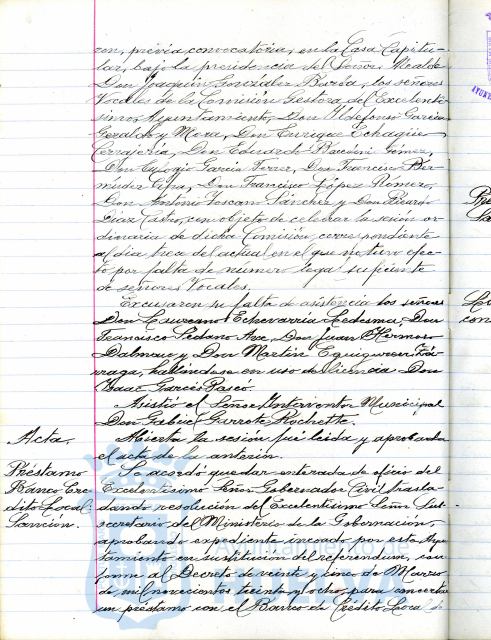 ron, prévia convocatoria, en la Casa Capitu-
lar, bajo la presidencia del Señor Alcalde
Don Joaquín González Barba, los señores
Vocales de la Comisión Gestora del Excelentí-
simo Ayuntamiento, Don Ildefonso García
Geraldo y Mora, Don Enrique Echagüe
Cerrajería, Don Eduardo Bacconi Gómez,
Don Eulogio García Ferrer, Don Francisco Ber-
mudez Don Francisco López Romero,
Don Antonio Toscano Sánchez y Don Ricardo
Díaz Castro, con objeto de celebrar la sesión or-
dinaria de dicha Comisión, correspondiente
al día trece del actual en el que no tuvo efec-
to por falta de número legal suficiente
de señores Vocales.
Excusaron su falta de asistencia los señores
Don Laureano Echevarría Ledesma, Don
Francisco Sedano Arce, Don Juan Hermoso
Dalmau y Don Martín
hallándose en uso de licencia Don
Isaac García
Asistió el Señor Interventor Municipal
Don Gabriel Garrote Rochette.
Acta.
Abierta la sesión fué leída y aprobada
el acta de la anterior.
Préstamo
Banco Cré-
dito Local.
Sanción.
Se acordó quedar enterada de oficio del
Excelentísimo Señor Gobernador Civil, trasla-
dando resolución del Excelentísimo Señor Sub-
secretario del Ministerio de la Gobernación,
aprobando expediente incoado por este Ayun-
tamiento en sustitución del referendum, con-
forme al Decreto de veinte y cinco de Marzo
de mil novecientos treinta y ocho, para concertar
un préstamo con el Banco de Crédito Local de